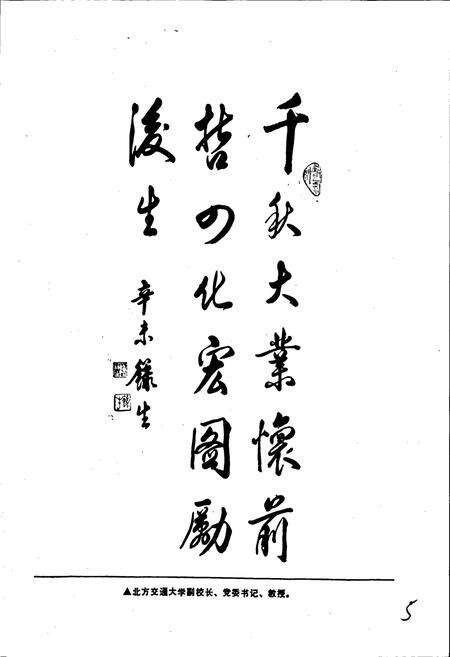 千秋大業懷前
哲四化宏圖勵
後生
辛未 生
▲北方交通大学副校长、党委书记、教授。
5